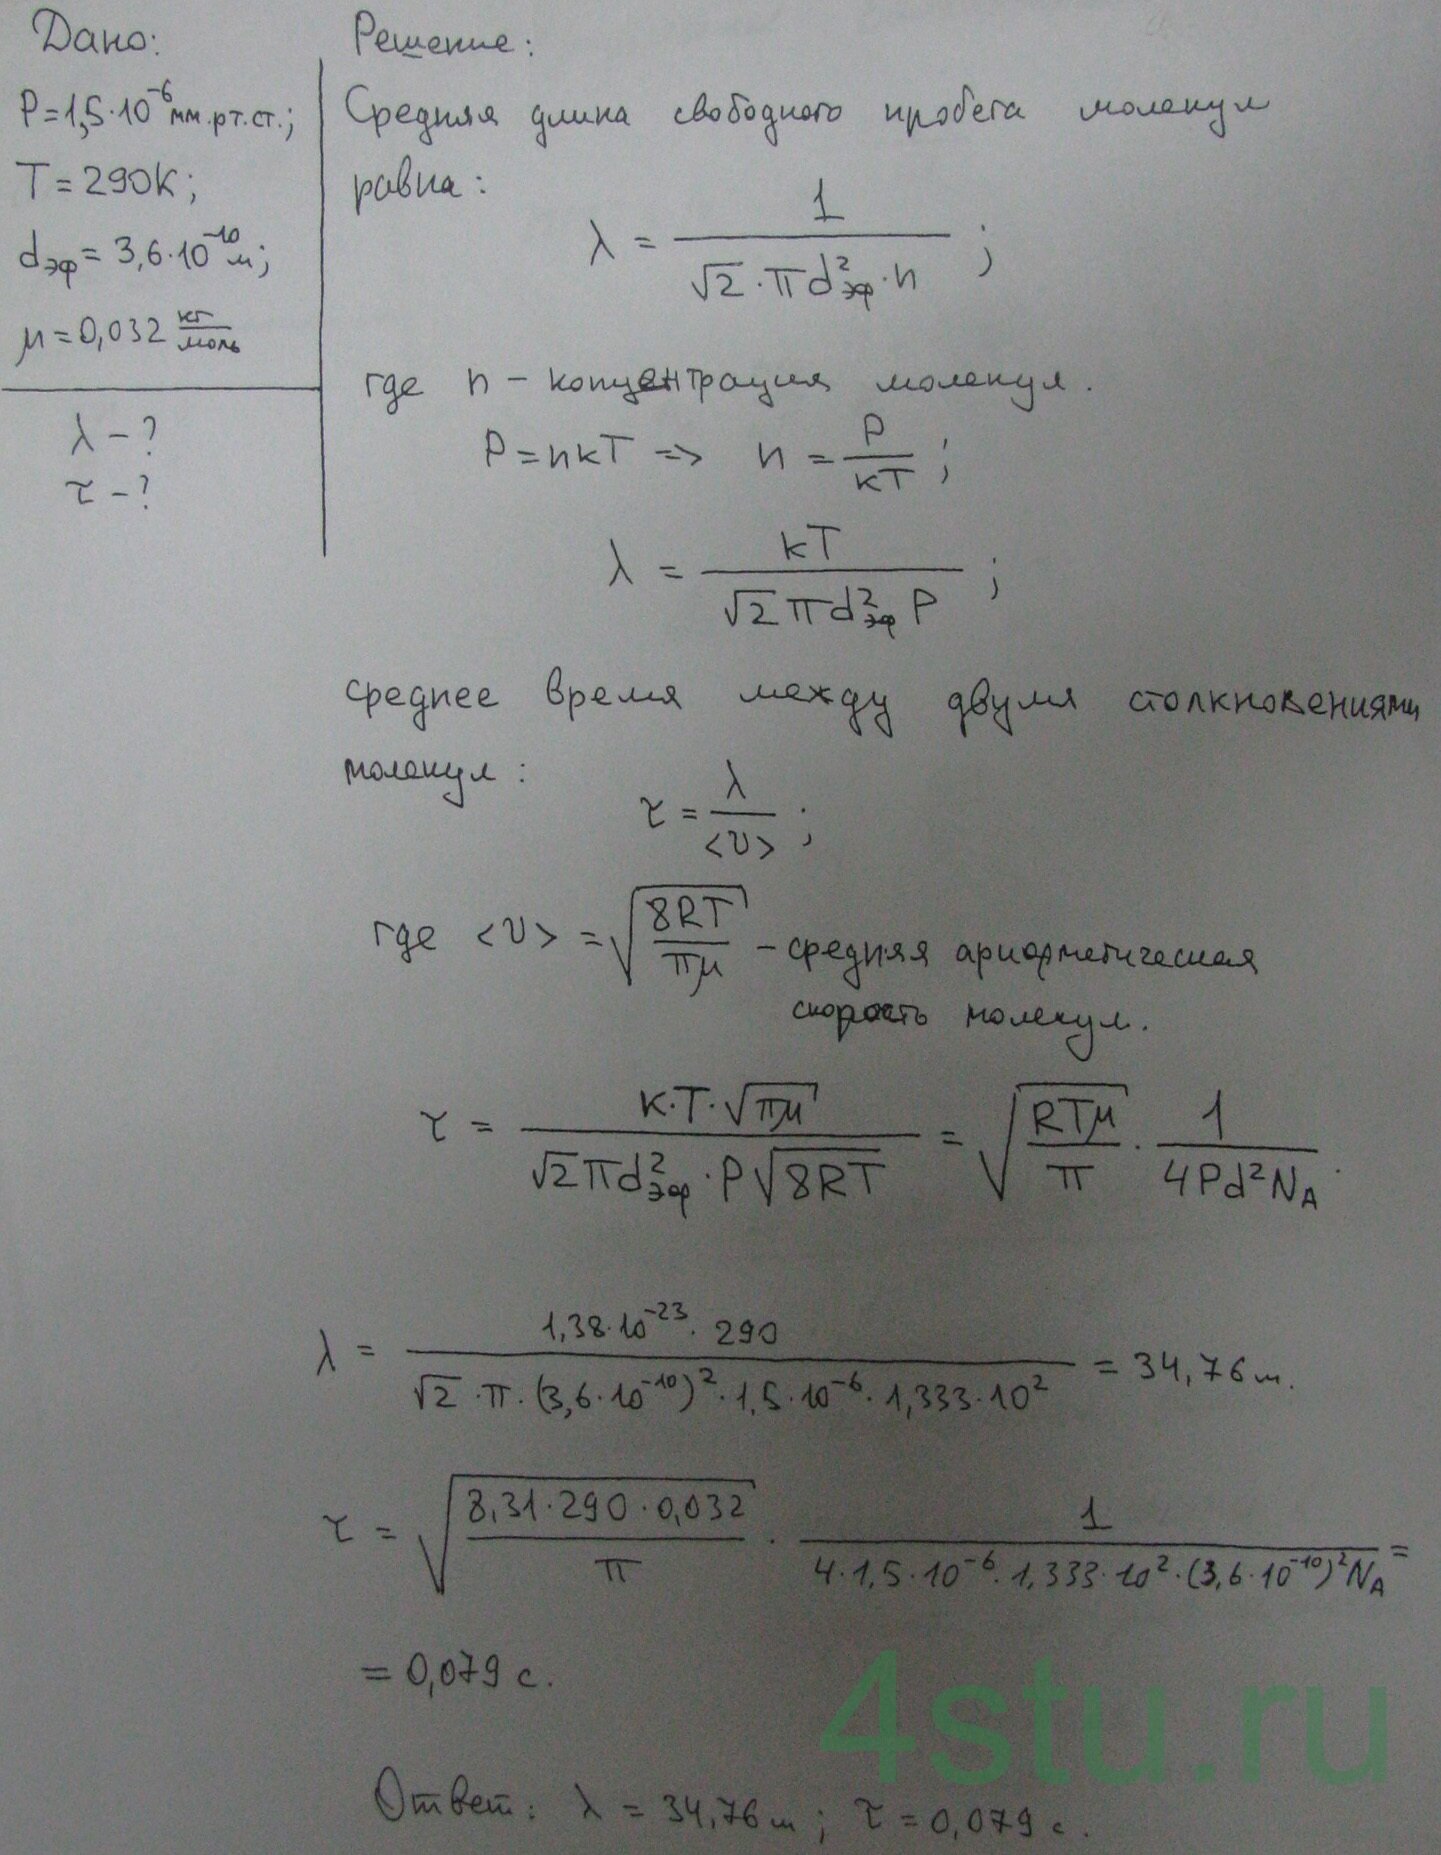 Дано:
P=1,5·10⁻⁶ мм.рт.ст.;
T=290K;
dэф=3,6·10⁻¹⁰ м;
μ=0,032 кг/моль
λ-?
τ-?
Решение:
Средняя длина свободного пробега молекул
равна:
λ = 1/(√2·πd²эф·n) ;
где n – концентрация молекул.
P=nkT => n = P/kT ;
λ = kT/(√2πd²эф P) ;
среднее время между двумя столкновениями
молекул:
τ = λ/<υ> ;
где <υ> = √(8RT/πμ) – средняя арифметическая
скорость молекул.
τ = K·T·√(πμ)/(√2πd²эф·P√(8RT)) = √(RTμ/π) · 1/(4Pd²N_A).
λ = 1,38·10⁻²³·290/(√2·π·(3,6·10⁻¹⁰)²·1,5·10⁻⁶·1,333·10²) = 34,76 м.
τ = √(8,31·290·0,032/π) · 1/(4·1,5·10⁻⁶·1,333·10²·(3,6·10⁻¹⁰)²N_A) =
= 0,079 с.
4stu.ru
Ответ: λ = 34,76 м ; τ = 0,079 с.